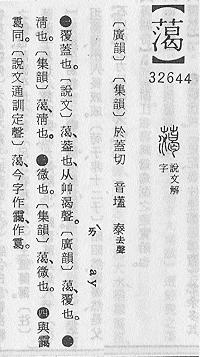 【㵣】
32644
㵣
說文解
字
〔廣韻〕〔集韻〕於蓋切 音壒 泰去聲
ㄞˋ ay
㊀覆蓋也。〔說文〕㵣、葢也、从艸渴聲。〔廣韻〕㵣、覆也。㊁
清也。〔集韻〕㵣、清也。㊂微也。〔集韻〕㵣、微也。㊃與靄
同。〔說文通訓定聲〕㵣、今字作靄作